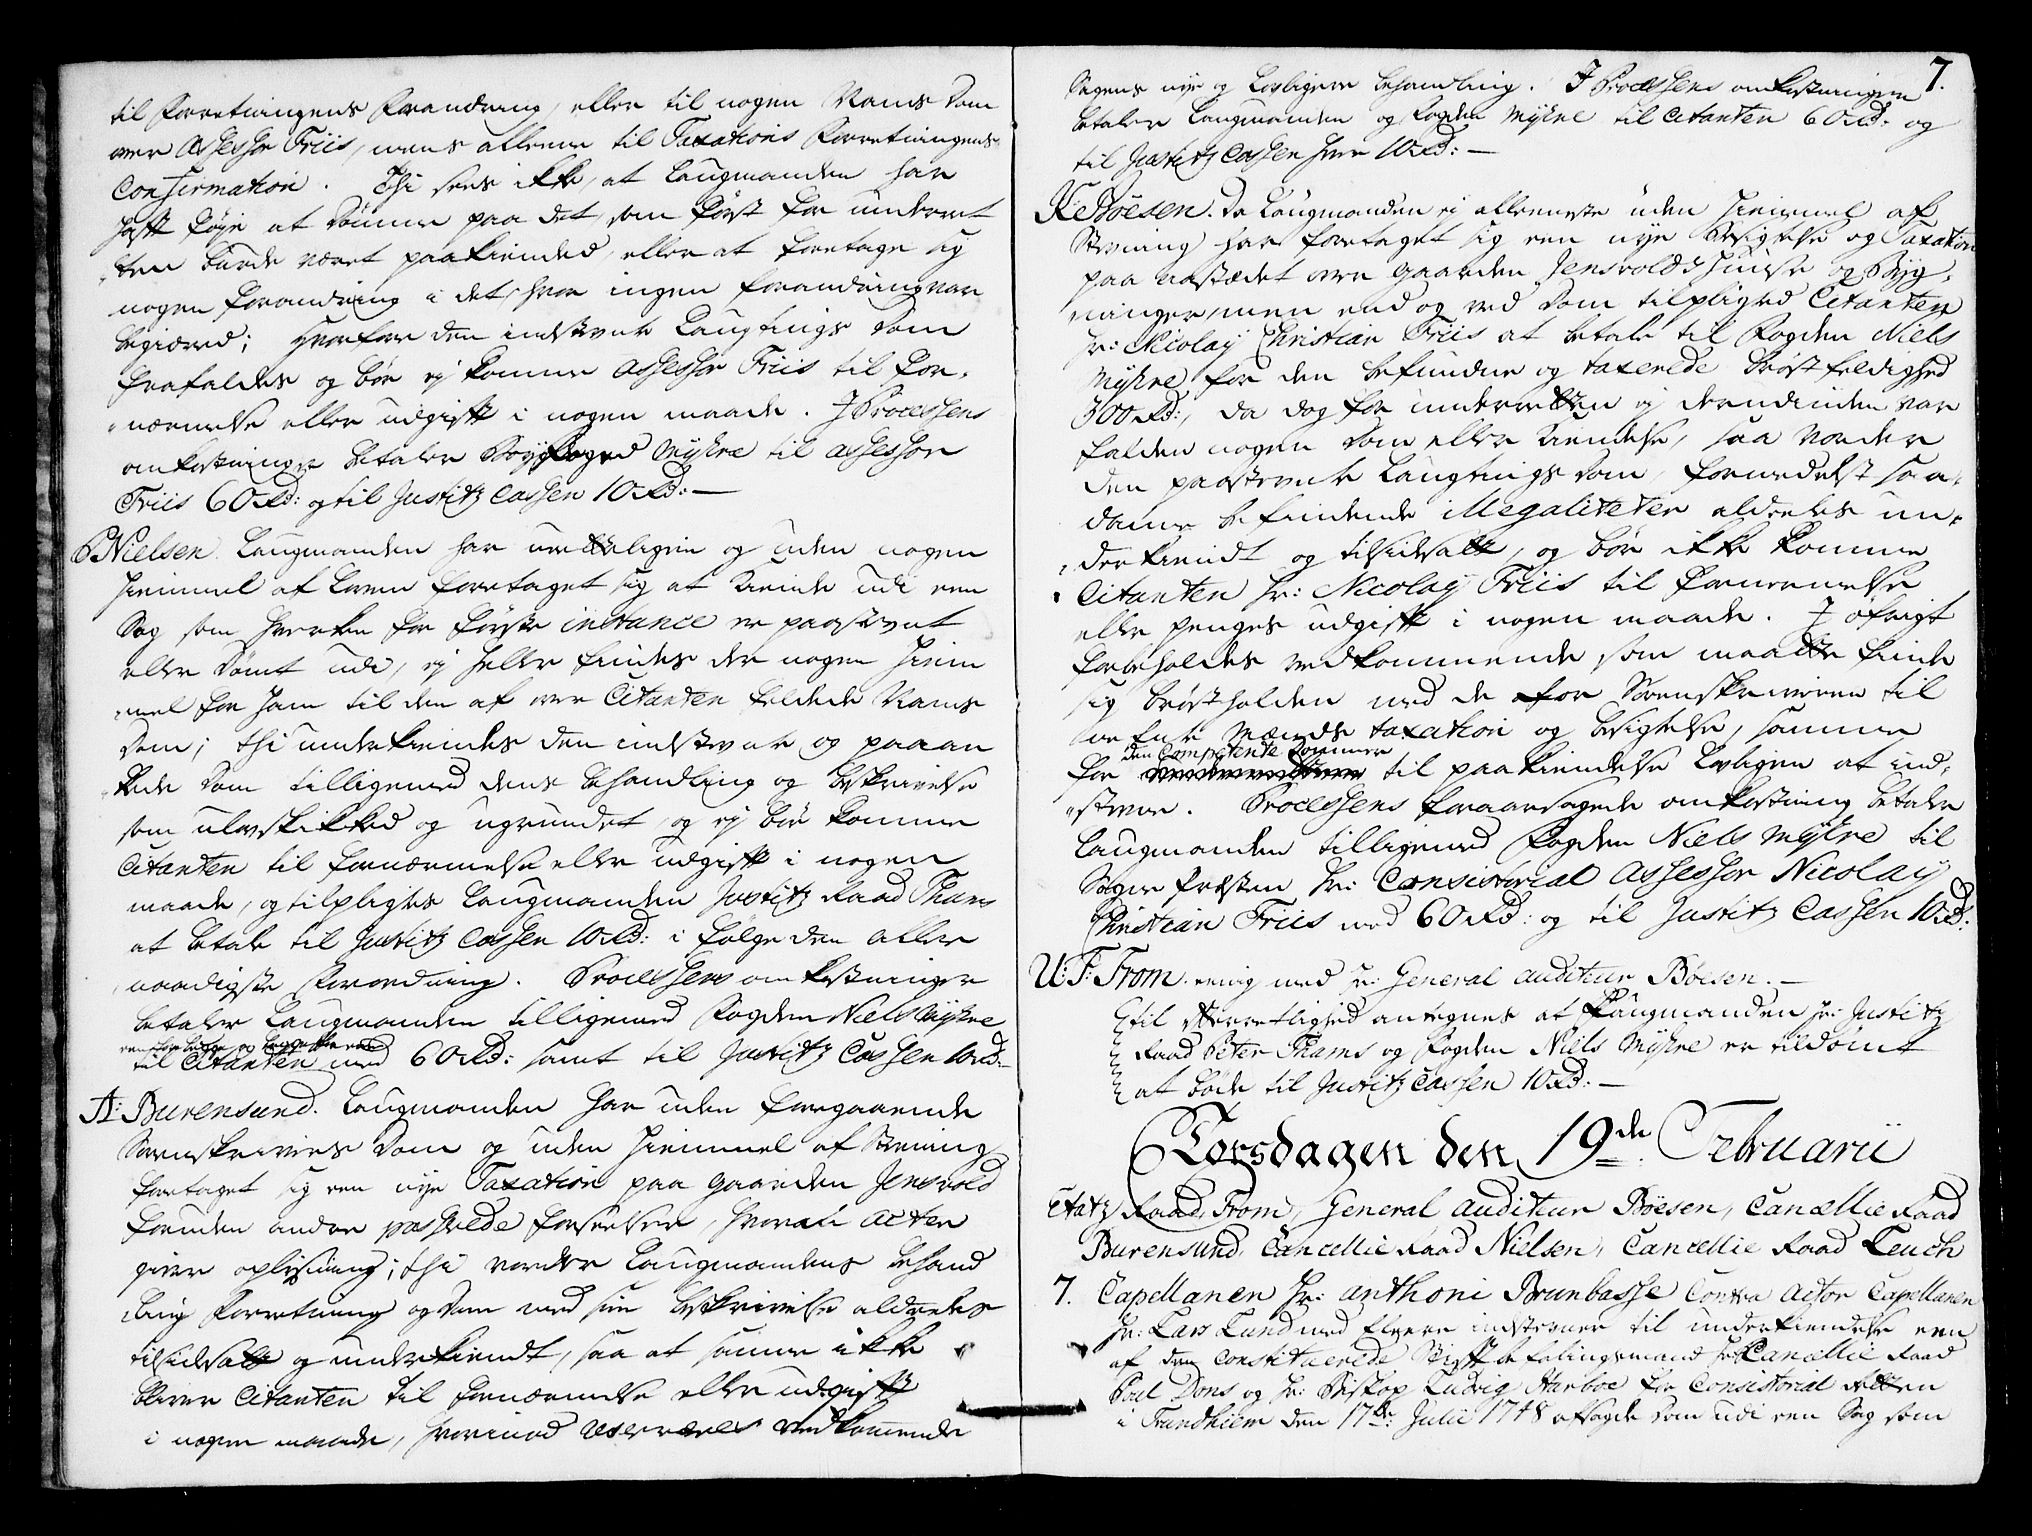 til Forretningens Forandring, eller til nogen Nams Dom
over Assessor Friis, mens alleene til Taxations Forretningens
Confirmation. Thi sees ikke, at Laugmanden har
haft Føje at dømme paa det, som først for underret
ten burde været paakiendet, eller at foretage sig
nogen forandring i det, hvor ingen forandring var
begiæred; hvorfore den indstevnte Laugtings Dom
frafaldes og bør ej komme Assessor Friis til for-
nærmelse eller udgift i nogen maade. I Processens
omkostninger betaler Foged Myhre til Assessor
Friis 60 Rd: og til Justitz Cassen 10 Rd: —
PNielsen. Laugmanden har uretteligen og uden nogen
Hiemmel af Loven foretaget sig at kiende udi een
Sag som hverken for første instance er paastevnt
eller dømt udi, ej heller findes der nogen Hiem
mel for ham til den af over Citanten fældede Nams
Dom; thi underkiendes den indstevnte og paaan
kede Dom tilligemed dens behandling og beskrivelse
som ulovskikked og ugrundet, og ej bør komme
Citanten til fornærmelse eller udgift i nogen
maade, og tilpligtes Laugmanden Justitz Raad Thams
at betale til Justitz Cassen 10 Rd: i følge den aller
naadigste Forordning. Processens omkostninger
betaler Laugmanden tilligemed Fogden Niels Myhre
til Citanten med 60 Rd: samt til Justitz Cassen 10 Rd: —
A: Burensund. Laugmanden har uden foregaaende
Sorenskrivers Dom og uden Hiemmel af Stevning
foretaget sig een nye Taxation paa Gaarden Jensvold
foruden andre passerede forseelser, hvorom Acten
giver oplysning; thi vorder Laugmandens behand
ling Forretning og Dom med sin beskrivelse aldeeles
tilsidesatt og underkiendt, saa at samme ikke
bliver Citanten til fornærmelse eller udgift
i nogen maade, hvorimod reserveres vedkommende
7.
Sagens nye og lovligere behandling. I Processens omkostninger
betaler Laugmanden og Fogden Myhre til Citanten 60 Rd: og
til Justitz Cassen hver 10 Rd: —
Bøesen. Da Laugmanden ej alleeneste uden Hiemmel af
Stevning har foretaget sig een nye besigtelse og Taxation
paa aastædet over Gaarden Jensvolds Huuse og Byg-
ninger, men end og ved Dom tilpligted Citanten
Hr: Nicolay Christian Friis at betale til Fogden Niels
Myhre for den befundne og taxerede brøstfeldighed
300 Rd:, da dog for underretten ej derudinden var
falden nogen Dom eller kiendelse, saa vorder
den paastevnte Laugtings Dom, formedelst saa-
danne befindende Illegaliteter aldeeles un-
derkiendt og tilsidesatt, og bør ikke komme
Citanten Hr: Nicolay Friis til fornærmelse
eller penges udgift i nogen maade. I øfrigt
forbeholdes vedkommende som maatte finde
sig brøstholden med de for Sorenskriveren til
 Mænds taxation og besigtelse, samme
den Competente Dommere
for til paakiendelse lovligen at ind-
stevne. Processens foraarsagede omkostning betaler
Laugmanden tilligemed Fogden Niels Myhre til
Sogne Præsten Hr: Consistorial Assessor Nicolay
Christian Friis med 60 Rd: og til Justitz Cassen 10 Rd:
U: F: From. eenig med Hr: General Auditeur Bøesen. —
til Efterretlighed antegnes at Laugmanden Hr: Justitz
Raad Peter Thams og Fogden Niels Myhre er tildømt
at bøde til Justitz Cassen 10 Rd: —
Torsdagen den 19de Februarii
Etatz Raad From, General Auditeur Bøesen, Cancellie Raad
Burensund, Cancellie Raad Nielsen, Cancellie Raad Leuch
7. Capellanen Hr: Anthoni Brunbasse Contra Actor Capellanen
Hr: Lars Lund med fleere indstevner til underkiendelse een
af den Constituerede Stiftbefalingsmand Hr: Cancellie Raad
Poul Dons og Hr: Biskop Ludvig Harboe for Consistorial Retten
i Trundhiem den 17de Julii 1748 afsagde Dom udi een Sag som